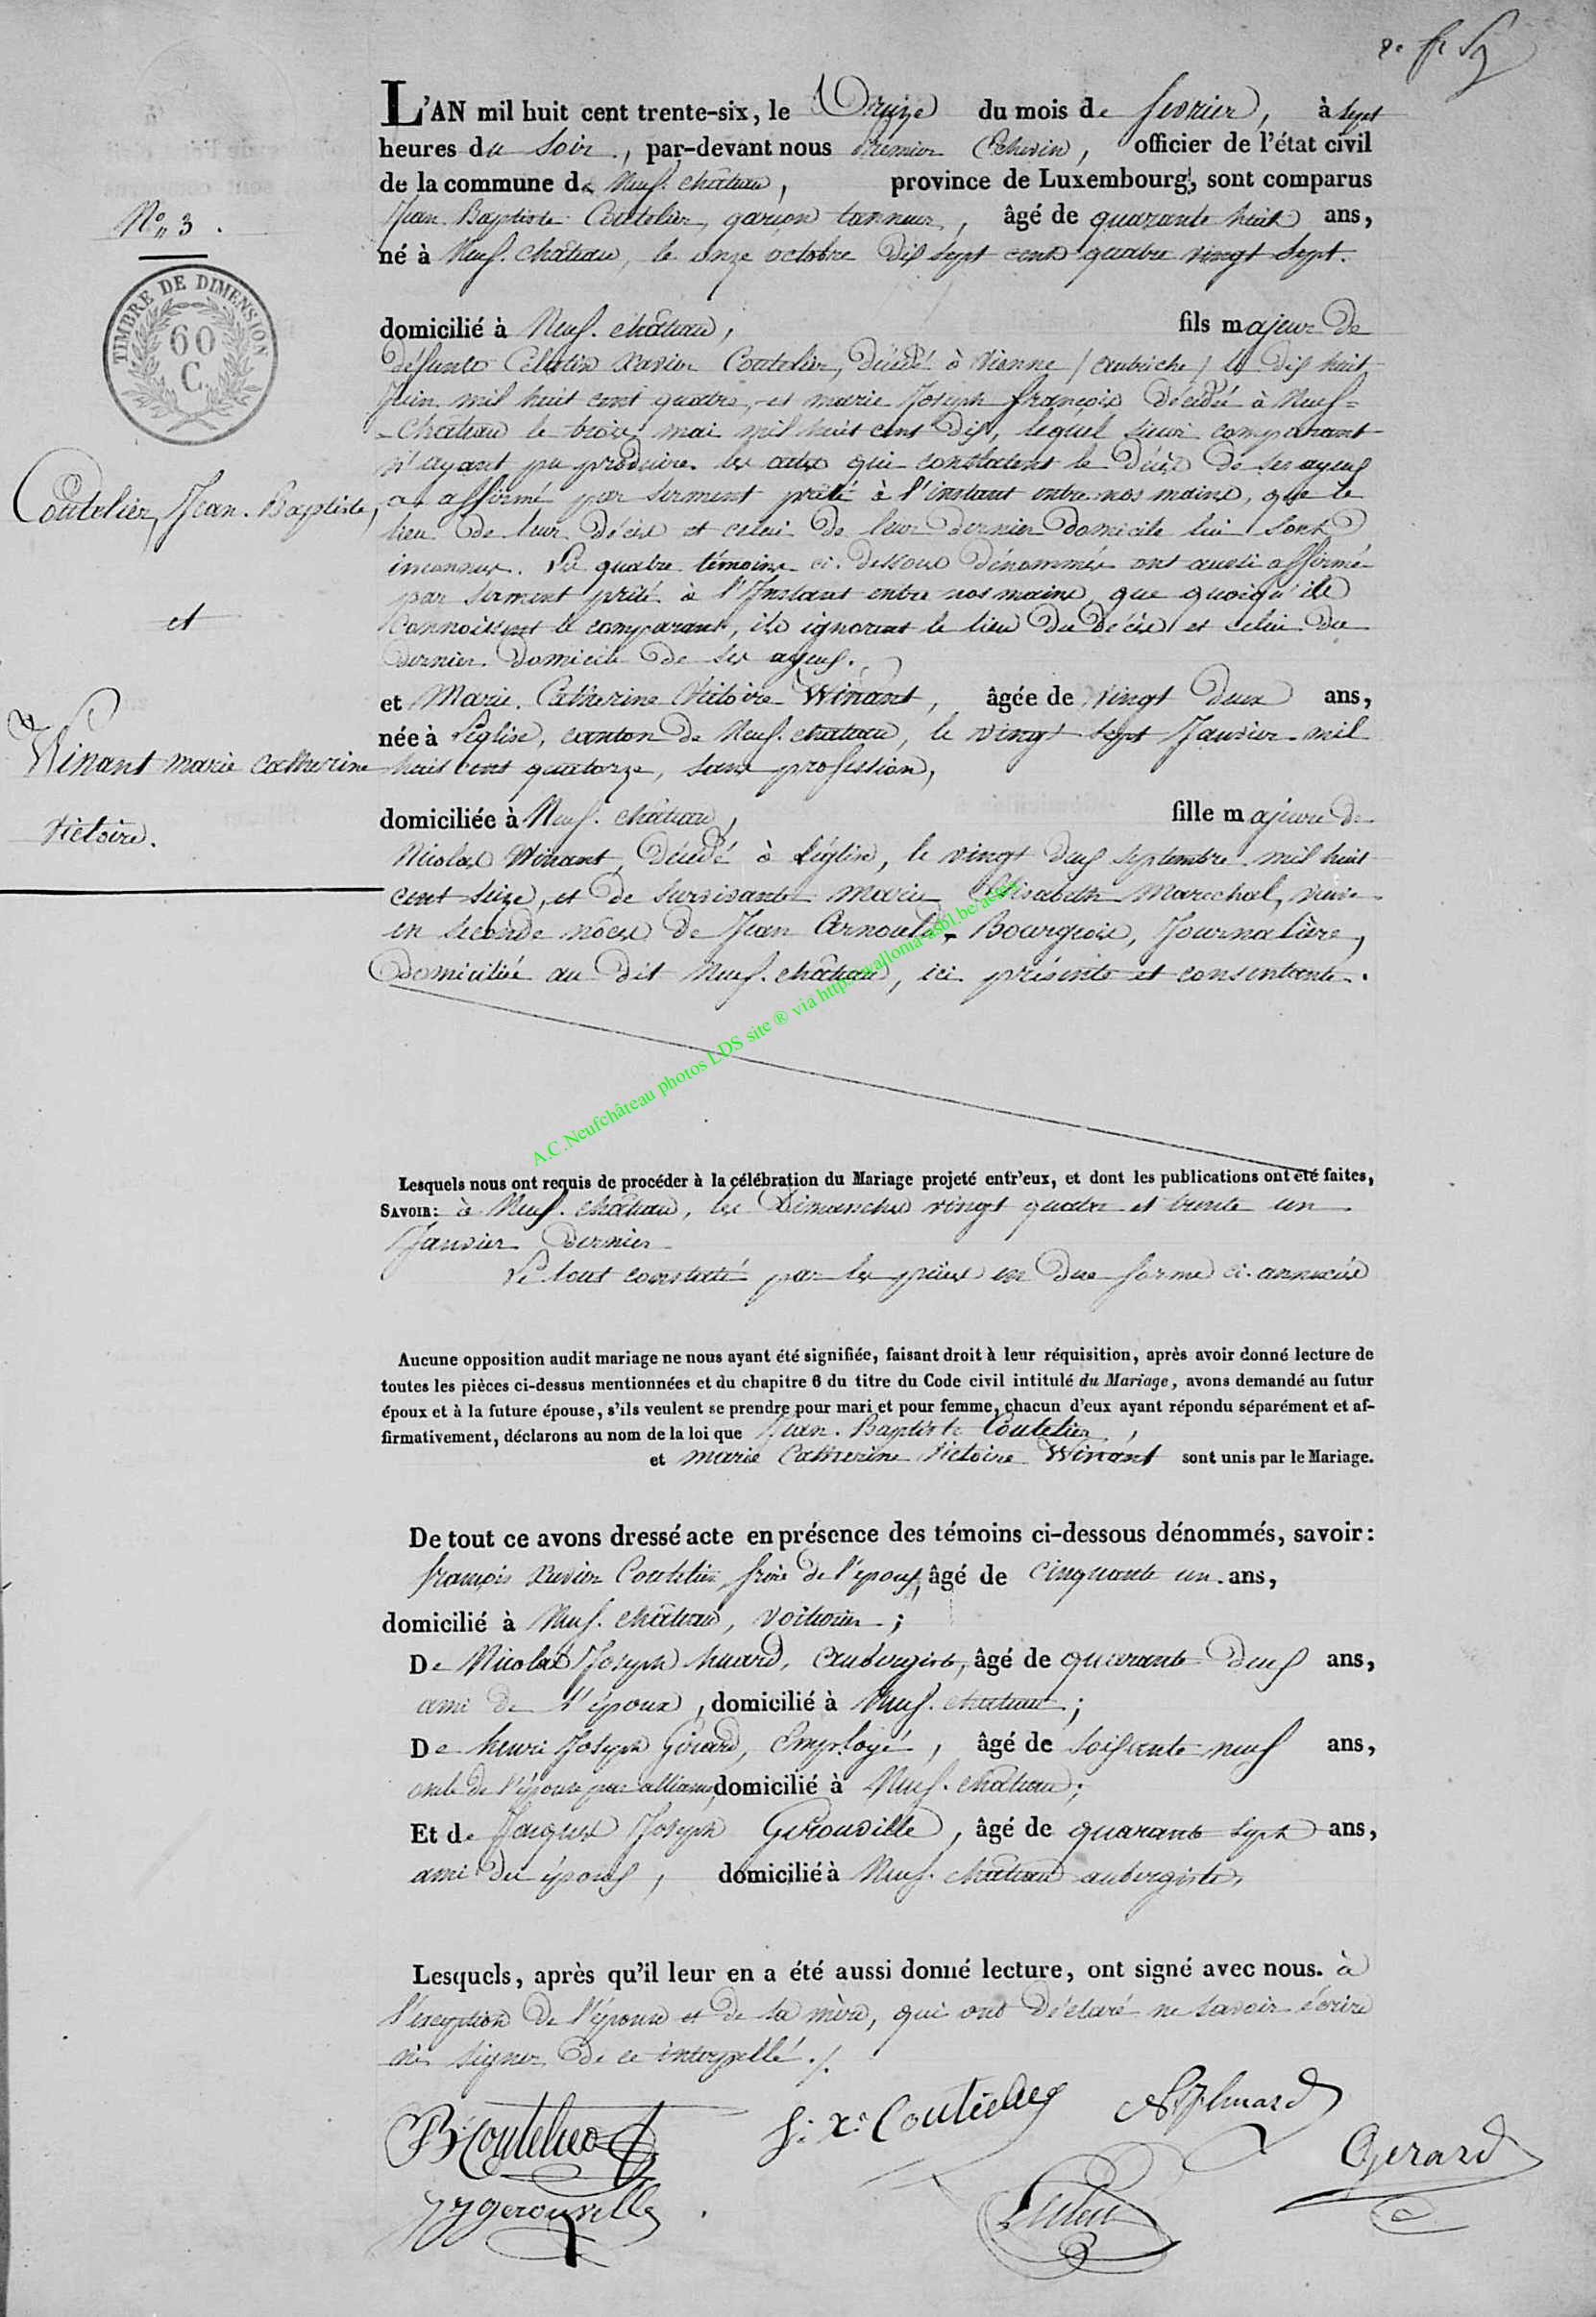 L'AN mil huit cent trente-six, le Treize du mois de fevrier, à sept
heures du Soir, par-devant nous Premier Echevin, officier de l'état civil
de la commune de Neuf-château, province de Luxembourg, sont comparus
Jean Baptiste Coutelier, garçon tanneur, âgé de quarante huit ans,
né à Neuf-château, le onze octobre dix sept cent quatre vingt sept.
N° 3.
TIMBRE DE DIMENSION
60
C.
domicilié à Neuf-château, fils majeur de
défunts Celestin Xavier Coutelier, décédé à Vienne / autriche / le dix huit
Juin mil huit cent quatre, et marie Joseph françois décédée à Neuf=
-Château le trois mai mil huit cent dix, lequel sieur comparant
n'ayant pu produire les actes qui constatent le décès de ses ayeux
a affirmé par serment prêté à l'instant entre nos mains, que le
lieu de leur décès et celui de leur dernier domicile lui sont
inconnus. Les quatre témoins ci-dessous dénommés ont aussi affirmé
par serment prêté à l'Instant entre nos mains, que quoiqu'ils
connoissent le comparant, ils ignorent le lieu du décès et celui du
dernier domicile de ses ayeux.
Coutelier, Jean-Baptiste,
et
Winant marie catherine
Victoire.
et Marie Catherine Victoire Winant, âgée de vingt deux ans,
née à Léglise, canton de Neuf-château, le vingt sept Janvier mil
huit cent quatorze, sans profession,
domiciliée à Neuf-château, fille majeure de
Nicolas Winant, décédé à Léglise, le vingt deux septembre mil huit
cent seize, et de survivante marie Elisabeth Marechal, veuve
en seconde nôces de Jean Arnould, Bourgeois, Journalière,
domiciliée au dit Neuf-château, ici présente et consentante.
A.C.Neufchâteau photos LDS site ® via https://wallonia-asbl.be/
Lesquels nous ont requis de procéder à la célébration du Mariage projeté entr'eux, et dont les publications ont été faites,
SAVOIR: à Neuf-château, les Dimanches vingt quatre et trente un
Janvier dernier
Le tout constaté par les pièces en due forme ci-annexées
Aucune opposition audit mariage ne nous ayant été signifiée, faisant droit à leur réquisition, après avoir donné lecture de
toutes les pièces ci-dessus mentionnées et du chapitre 6 du titre du Code civil intitulé du Mariage, avons demandé au futur
époux et à la future épouse, s'ils veulent se prendre pour mari et pour femme, chacun d'eux ayant répondu séparément et af-
firmativement, déclarons au nom de la loi que Jean-Baptiste Coutelier,
et marie Catherine Victoire Winant sont unis par le Mariage.
De tout ce avons dressé acte en présence des témoins ci-dessous dénommés, savoir:
françois Xavier Coutelier, frère de l'époux, âgé de cinquante un ans,
domicilié à Neuf-château, voiturier;
De Nicolas Joseph huard, aubergiste, âgé de quarante deux ans,
ami de l'époux, domicilié à Neuf-château;
De henri Joseph Gérard, Employé, âgé de soixante neuf ans,
oncle de l'époux par alliance, domicilié à Neuf-château;
Et de Jacques Joseph Gerouville, âgé de quarante sept ans,
ami des époux, domicilié à Neuf-château aubergiste,
Lesquels, après qu'il leur en a été aussi donné lecture, ont signé avec nous. à
l'exeption de l'épouse et de sa mère, qui ont déclaré ne savoir écrire
ni signer, de ce interpellé./.
JBCoutelier f: x: Coutelier NJhuard
Gerard
JJgerouville